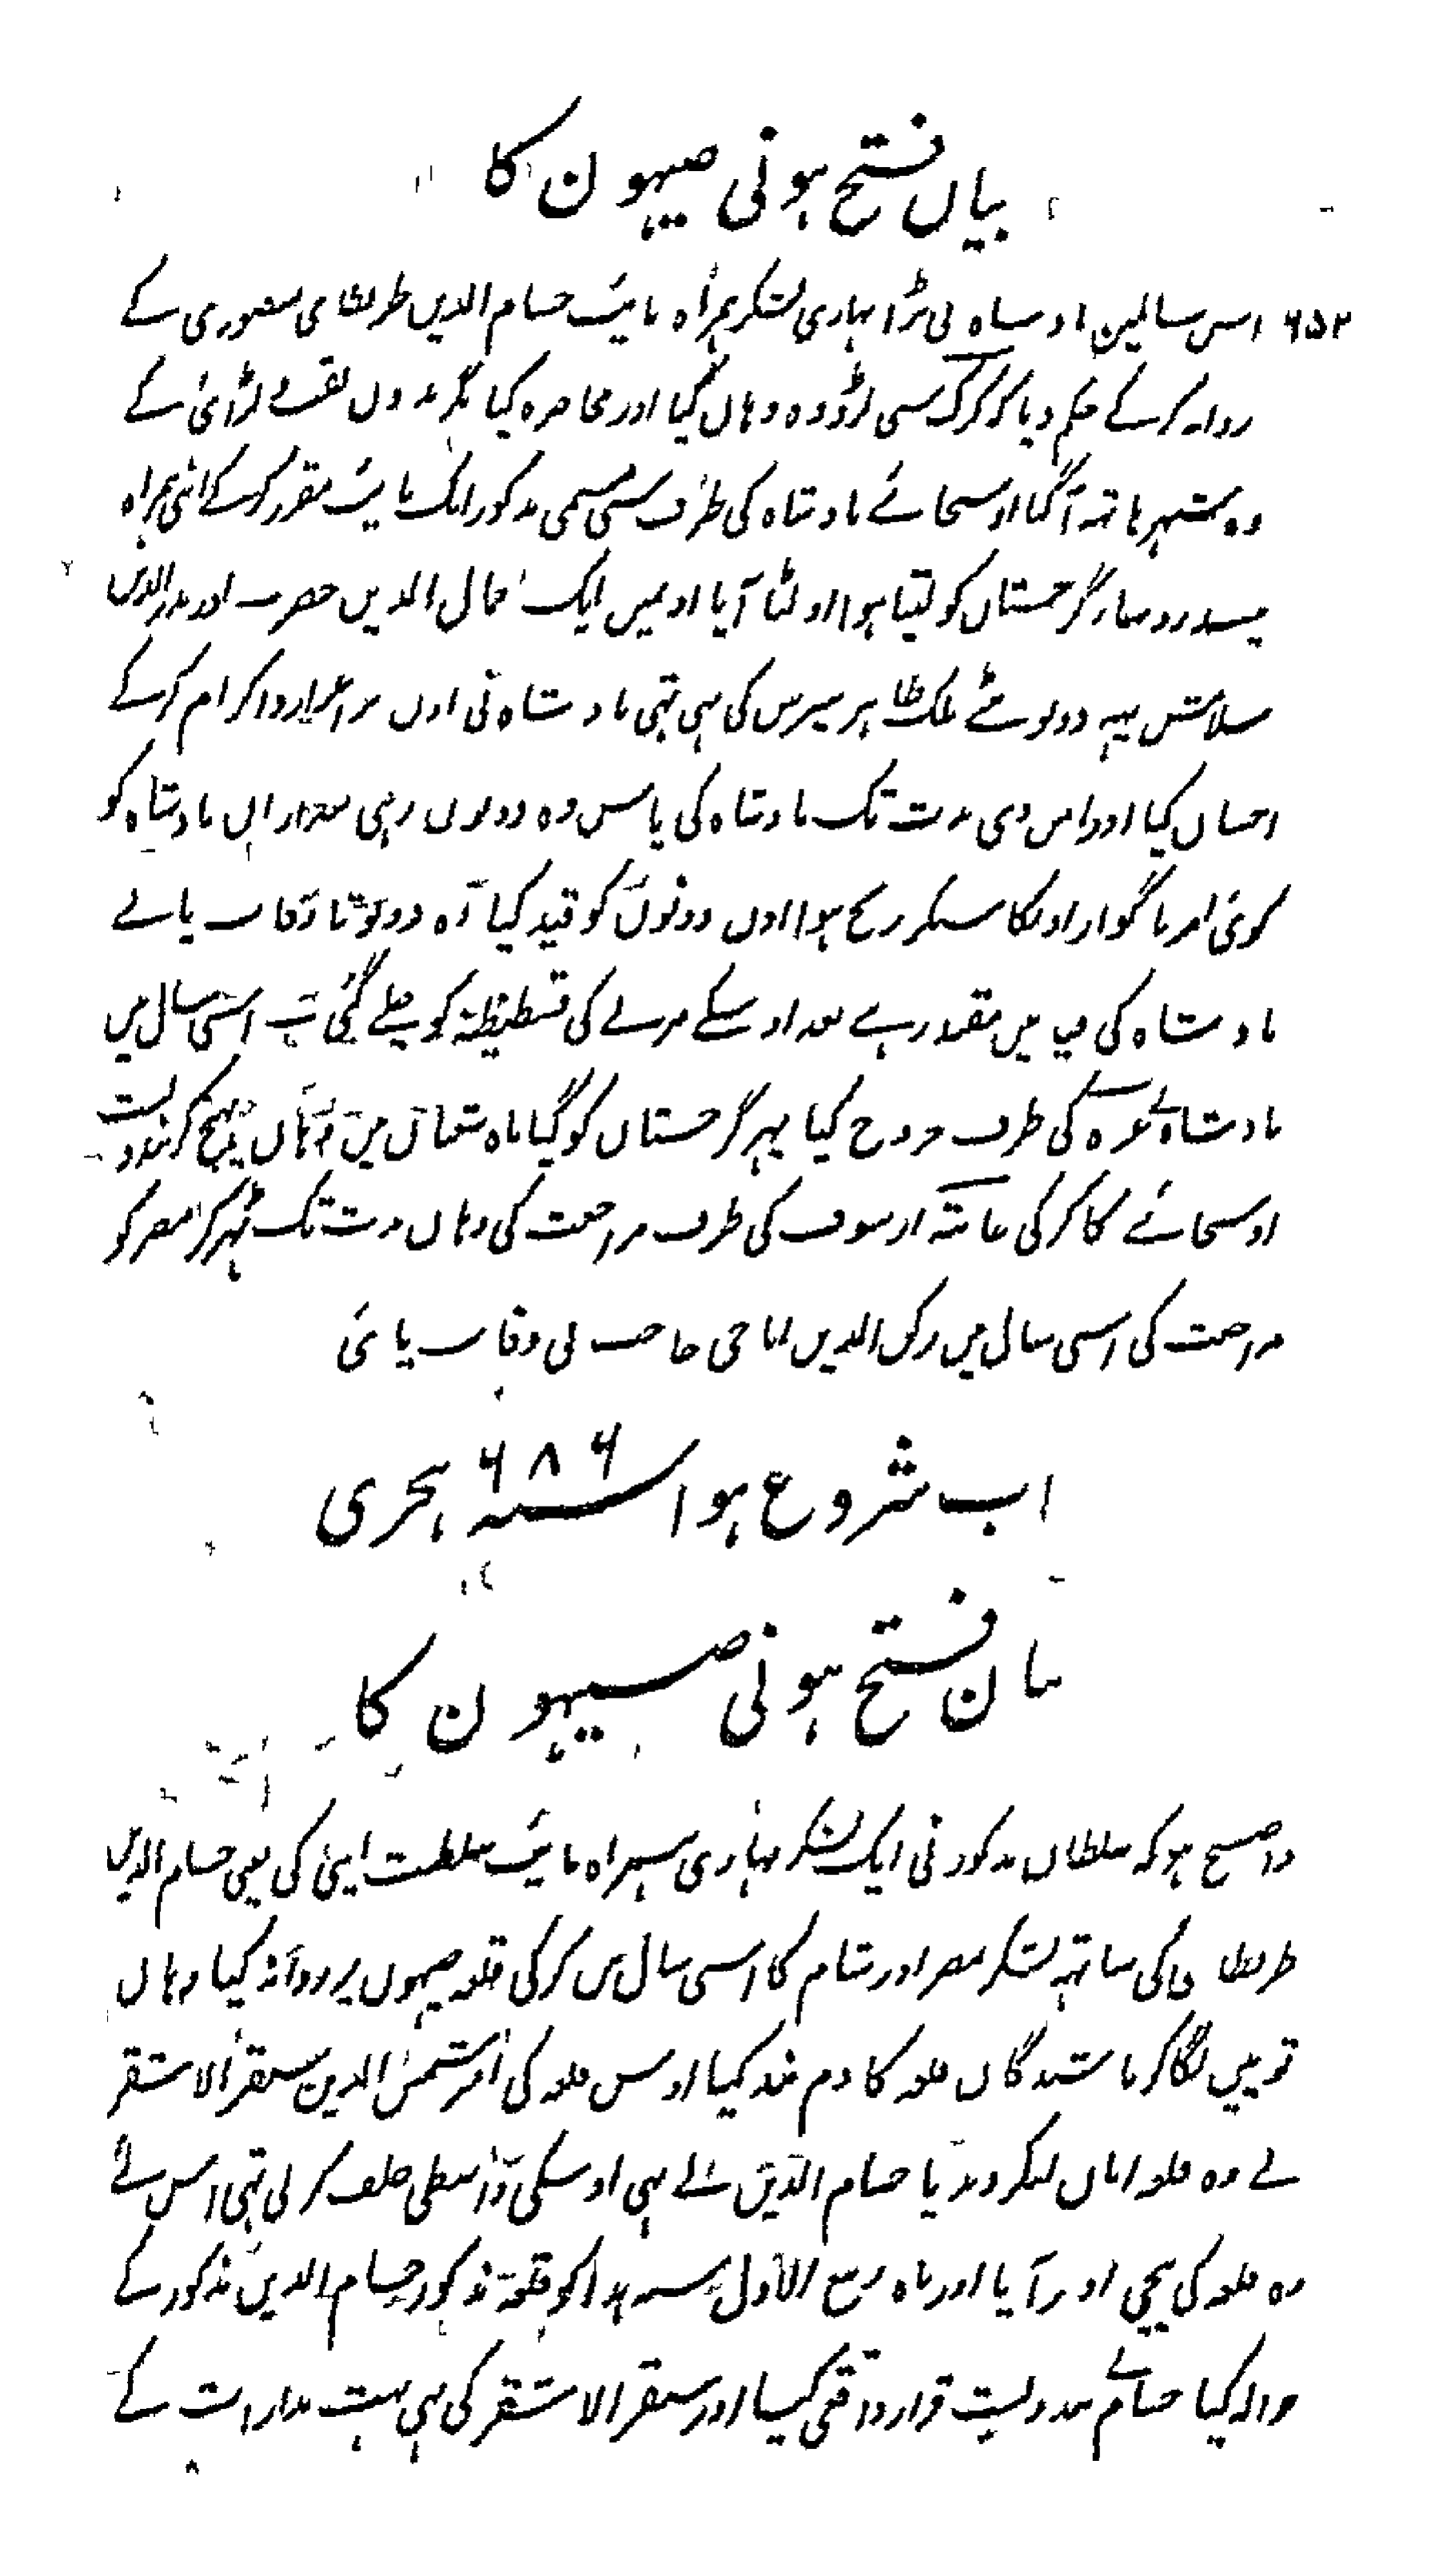 بیاں فتح ہونی صیہون کا
۶۵۲ اس سالمین بادساہ نی بڑا بہاری لشکر ہمراہ نایب حسام الدیں طرنطای منصوری کے
روانہ کرکے حکم دیا کہ کرک سی لڑو وہ وہاں گیا اور محاصرہ کیا مگر بدوں لڑائی کے
وہ شہر ہاتہ آگیا اوسجائے بادشاہ کی طرف سی مسمی مذکور ایک نایب مقرر کرکے اپنی ہمراہ
گرجستاں کو لیتا ہوا اولٹا آیا اونمیں ایک جمال الدیں حضر اور بدر الدیں
سلامش یہہ دونو بیٹے ملک ظاہر بیبرس کی ہی تہی بادشاہ نی اوں پر اعزاز واکرام کرکے
احساں کیا اور امن دی مدت تک بادشاہ کی پاس وہ دونوں رہی بعد ازاں بادشاہ کو
کوئی امر ناگوار اونکا سنکر رنج ہوا اوں دونوں کو قید کیا وہ دونو تا وفات پانے
بادشاہ کی قید میں مقید رہے بعد اوسکے مرنے کی قسطنطنیہ کو چلے گئی اسی سال میں
بادشاہ نے غزہ کی طرف خروج کیا پہر گرجستاں کو گیا ماہ شعباں میں وہاں پہنچ کر بندوبست
اوسجائے کا کرکی غابتہ ارسوف کی طرف مراجعت کی وہاں مدت تک ٹہر کر مصر کو
مراجعت کی اسی سال میں رکں الدیں اباجی حاجب نی وفات پائی
اب شروع ہوا سنہ ۶۸۶ ہجری
بیان فتح ہونی صیہون کا
واضح ہو کہ سلطاں مذکور نی ایک لشکر بہاری ہمراہ نایب سلطنت اپنی کی یعنی حسام الدیں
طرنطای کی ساتہہ لشکر مصر اور شام کا اسی سال میں کرکی قلعہ صیہوں پر روانہ کیا وہاں
توپیں لگا کر باشندگاں قلعہ کا دم بند کیا اوس قلعہ کی امیر شمس الدین سنقر الاشقر
نے وہ قلعہ اماں لیکر دیدیا حسام الدین نے بہی اوسکی واسطی حلف کرلی تہی اس لئے
وہ قلعہ کی نیچی اوتر آیا اور ماہ ربیع الاول سنہ ہذا کو قلعہ مذکور حسام الدیں مذکور کے
حوالہ کیا حسام نے بندوبست قرار واقعی کیا اور سنقر الاشقر کی بہی بہت مدارات کے